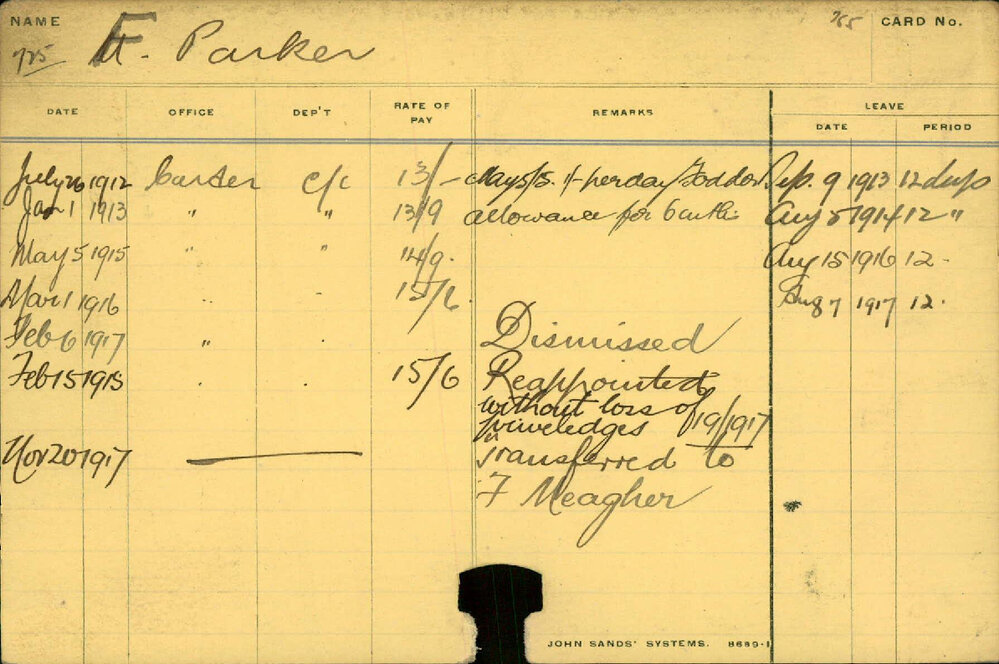 NAME 765 CARD No.
725 F. Parker
LEAVE
DATE OFFICE DEP'T RATE OF PAY REMARKS DATE PERIOD
July 26 1912 Carter C/C 13/- May 5/15. 1/- per day Fodder Sep. 9 1913 12 days
Jan 1 1913 " " 13/9 allowance for 6 mths Aug 5 1914 12 "
May 5 1915 " " 14/9. Aug 15 1916 12.
Mar 1 1916 " " 15/6 Aug 7 1917 12.
Feb 6 1917 " . Dismissed
Feb 15 1915 . . 15/6 Reappointed
without loss of
priveledges 19/1917
Nov 20 1917 Transferred to
F Meagher
JOHN SANDS' SYSTEMS. 8689-1